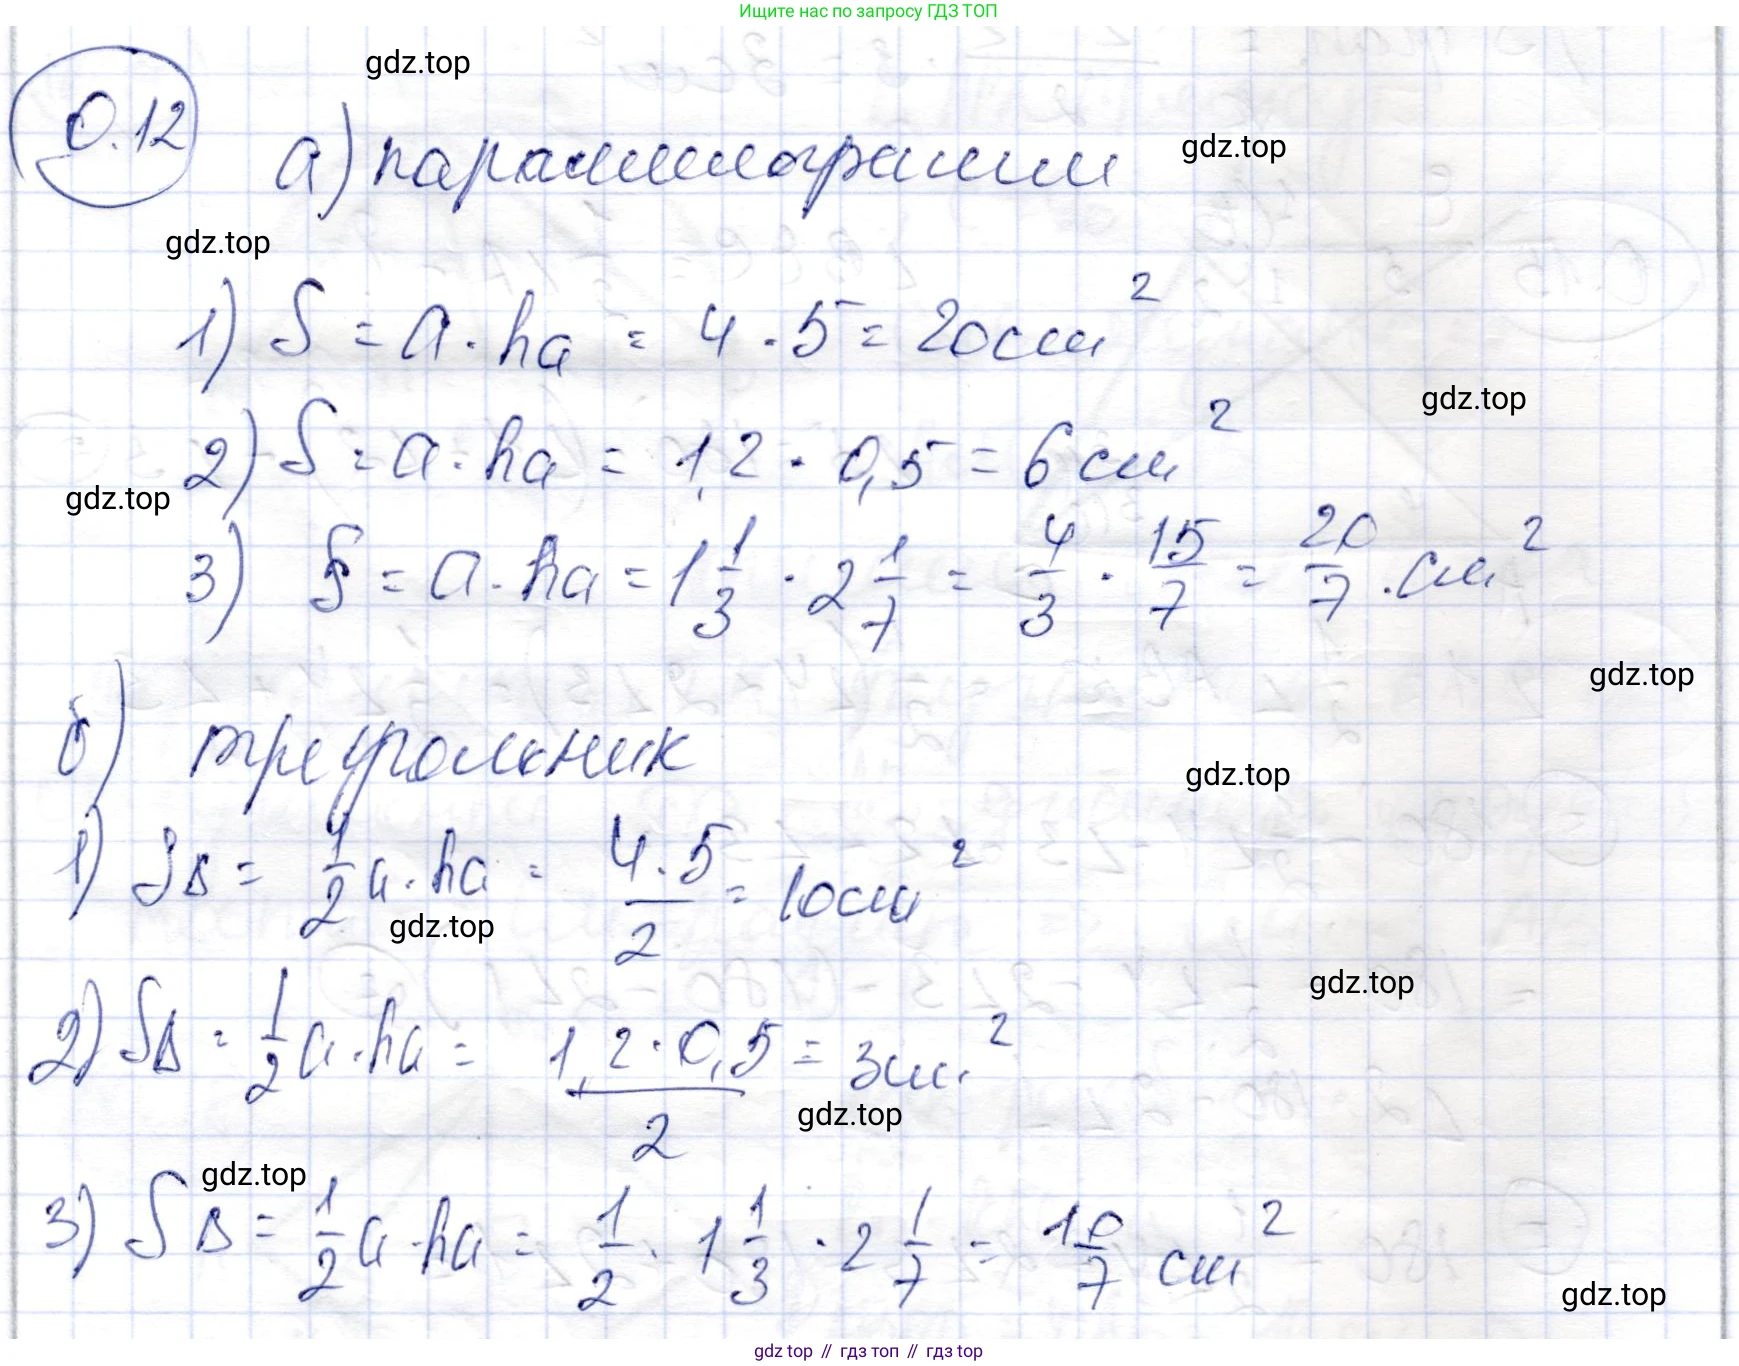 Ищите нас по запросу ГДЗ ТОП
gdz.top
0.12 а) параллелограмм
gdz.top
gdz.top
1) S = a · ha = 4 · 5 = 20 см²
gdz.top
2) S = a · ha = 1,2 · 0,5 = 6 см²
gdz.top
3) S = a · ha = 1 1/3 · 2 1/7 = 4/3 · 15/7 = 20/7 · см²
gdz.top
б) треугольник
gdz.top
1) S△ = 1/2 a · ha = 4·5/2 = 10 см²
gdz.top
gdz.top
2) S△ = 1/2 a · ha = 1,2·0,5/2 = 3 см²
gdz.top
gdz.top
3) S△ = 1/2 a · ha = 1/2 · 1 1/3 · 2 1/7 = 10/7 см²
gdz.top
gdz top // гдз топ // гдз top